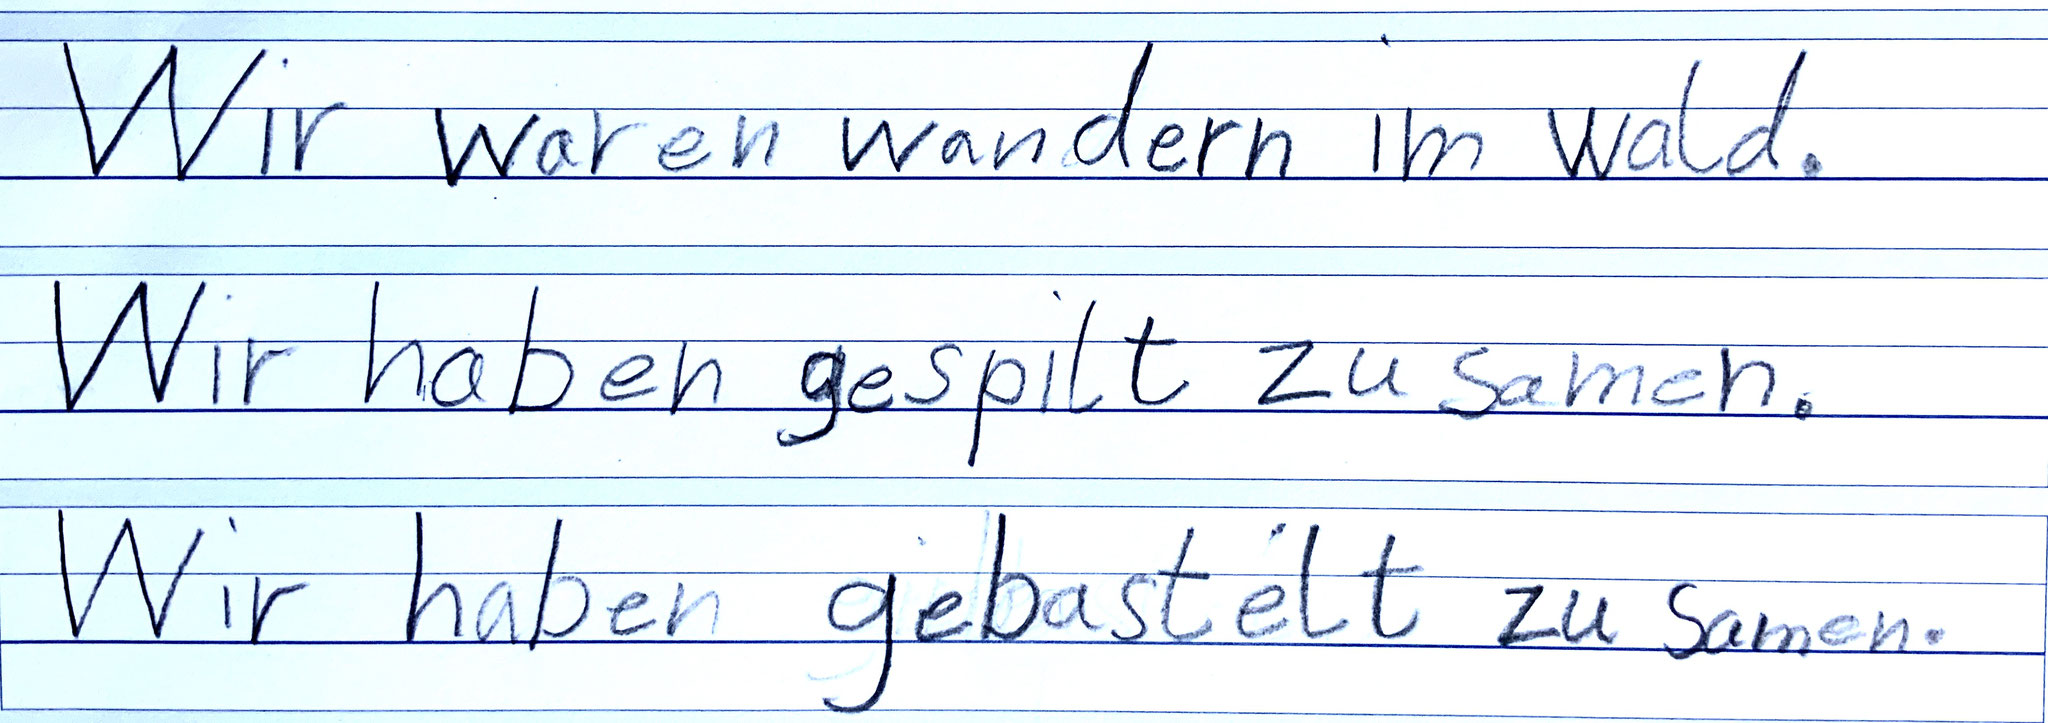 Wir waren wandern im wald.
Wir haben gespilt zu samen.
Wir haben gebastelt zu samen.